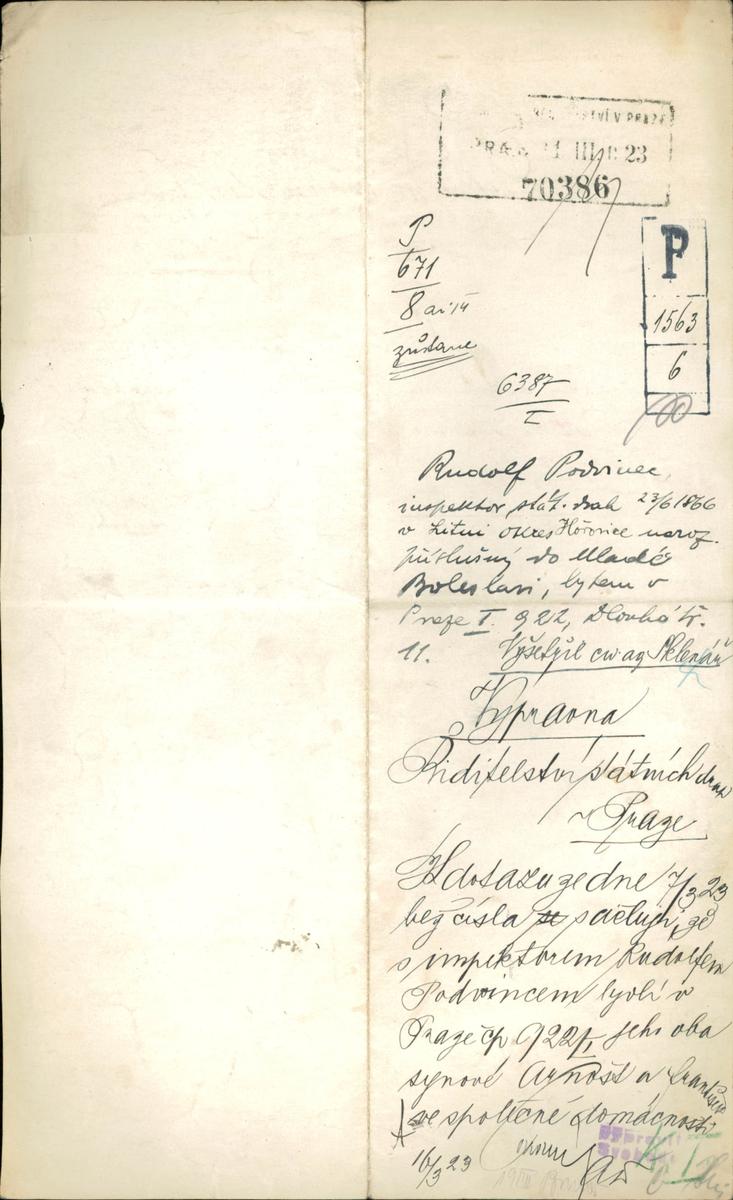 STVÍ V PRAZE
III 23
70386
P
671
8
zůstane
P
1563
6
6387
I
Rudolf Podvinec,
inspektor stát. drah 23/6 1866
v Litni okres Hořovice naroz.
příslušný do Mladé
Boleslavi, bytem v
Praze I. 922, Dlouhá tř.
11. Vyšetřil cw. ag. Sklenář
Výpravna
Ředitelství státních drah
v Praze
K dotazu ze dne 7/3 23
bez čísla sděluji, že
s inspektorem Rudolfem
Podvincem bydlí v
Praze čp 922/I jeho oba
synové Arnošt a František
ve společné domácnosti
16/3 23